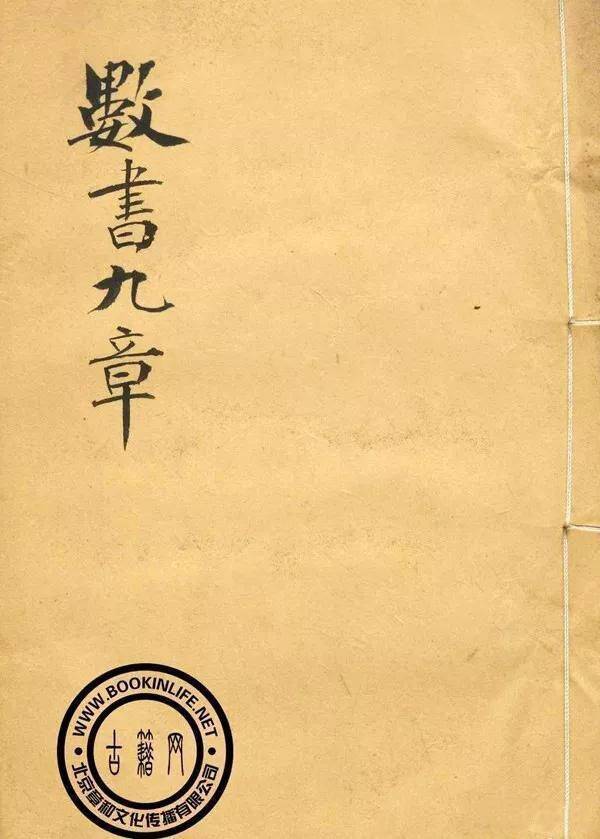 數書九章
WWW.BOOKINLIFE.NET
古籍网
北京章和文化传播有限公司